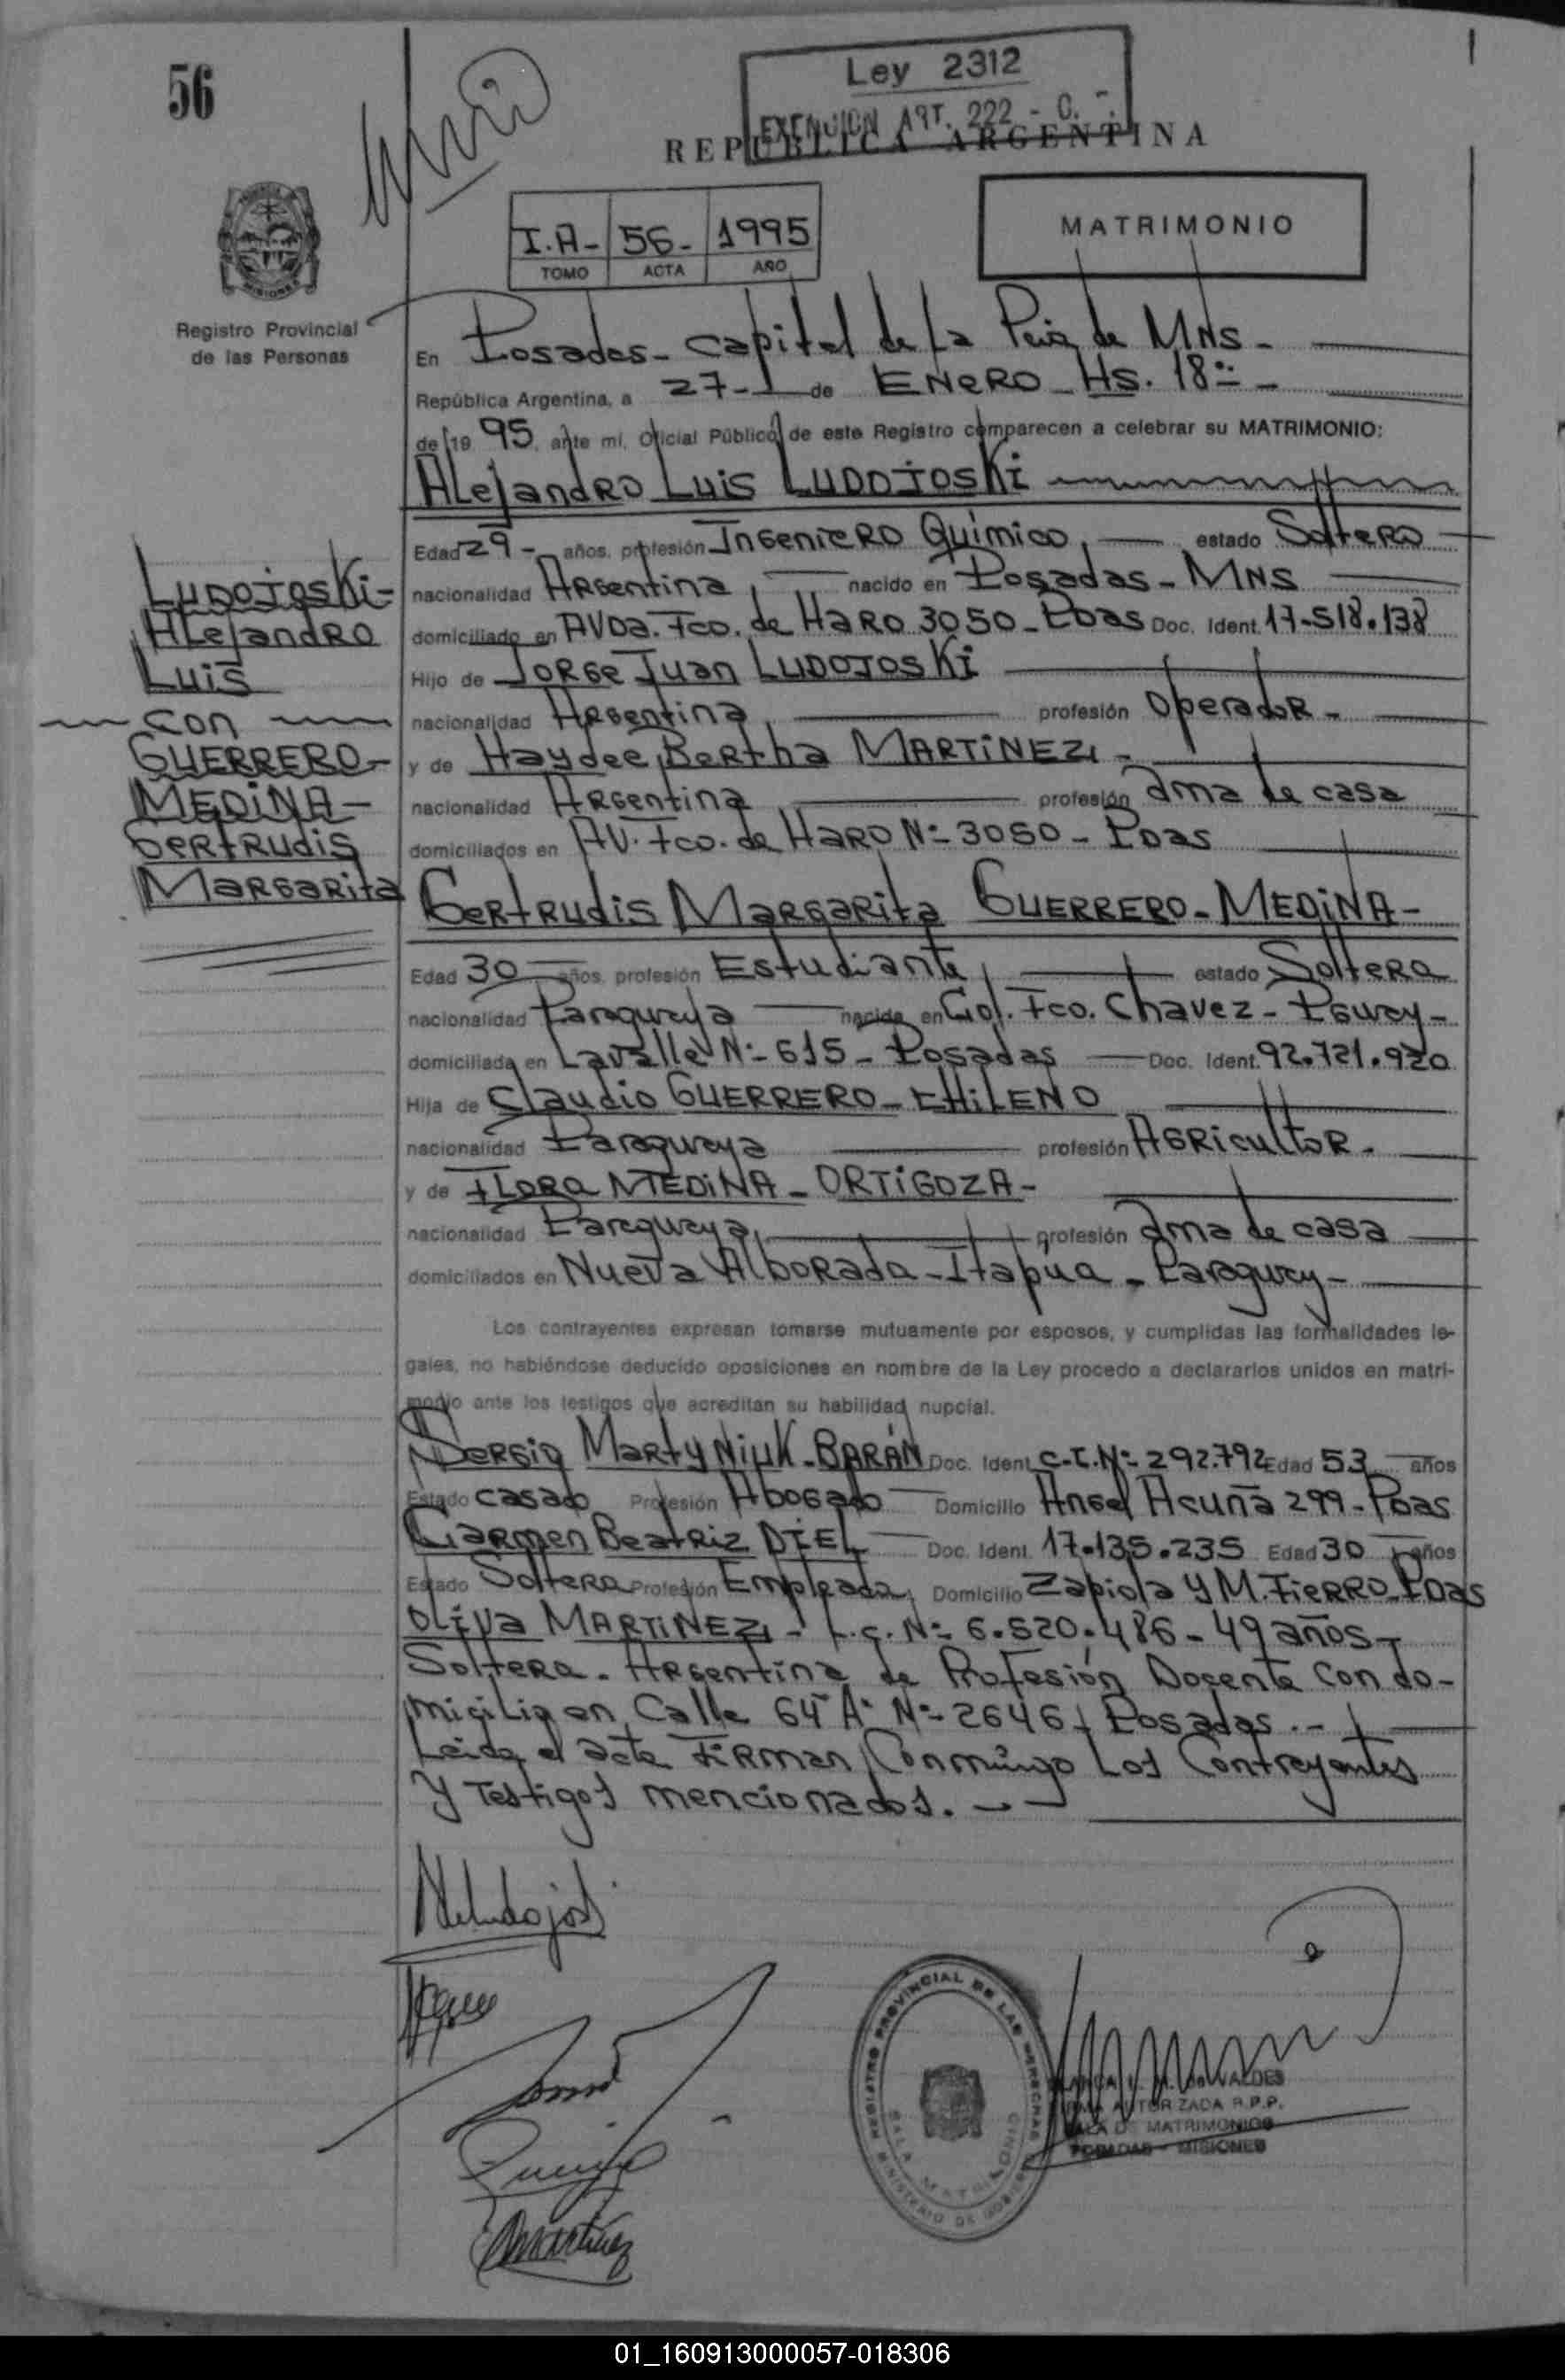 56
Ley 2312
EXENCION ART. 222 - C.
REPUBLICA ARGENTINA
I.A- 56- 1995
TOMO ACTA AÑO
MATRIMONIO
MISIONES
Registro Provincial
de las Personas
En Posadas - Capital de La Pcia de MNS -
República Argentina, a 27- de ENERO Hs. 18
de 19 95, ante mí, Oficial Público de este Registro comparecen a celebrar su MATRIMONIO:
Alejandro Luis LUDOJOSKI
Edad 29 - años, profesión Ingeniero Químico, estado Soltero
nacionalidad Argentina, nacido en Posadas - MNS
domiciliado en AVDa. Fco. de HARO 3050 - Pdas Doc. Ident. 17.518.138
Hijo de Jorge Juan LUDOJOSKI
nacionalidad Argentina, profesión Operador -
y de Haydee Bertha MARTINEZ -
nacionalidad Argentina profesión ama de casa
domiciliados en AV. Fco. de HARO Nº 3050 - Pdas
LUDOJOSKI -
Alejandro
Luis
con
GUERRERO -
MEDINA -
Gertrudis
Margarita
Gertrudis Margarita GUERRERO - MEDINA -
Edad 30 años, profesión Estudiante, estado Soltera
nacionalidad Paraguaya nacida en Col. Fco. Chavez - Pguay -
domiciliada en Lavalle Nº 615 - Posadas Doc. Ident. 92.721.920
Hija de Claudio GUERRERO - CHILENO
nacionalidad Paraguaya profesión Agricultor -
y de Flora MEDINA - ORTIGOZA -
nacionalidad Paraguaya, profesión ama de casa
domiciliados en Nueva Alborada - Itapua - Paraguay -
Los contrayentes expresan tomarse mutuamente por esposos, y cumplidas las formalidades le-
gales, no habiéndose deducido oposiciones en nombre de la Ley procedo a declararlos unidos en matri-
monio ante los testigos que acreditan su habilidad nupcial.
Sergio Martyniuk - BARÁN Doc. Ident. C.I. Nº 292.792 Edad 53 años
Estado casado Profesión Abogado Domicilio Angel Acuña 299 - Pdas
Carmen Beatriz DIEL Doc. Ident. 17.135.235 Edad 30 años
Estado Soltera Profesión Empleada, Domicilio Zapiola y M. Fierro - Pdas
Oliva MARTINEZ - L.C. Nº 6.520.486 - 49 años -
Soltera - Argentina de Profesión Docente con do-
micilio en Calle 64 A Nº 2646 - Posadas. -
Leida el acta Firman Conmigo Los Contrayentes
y Testigos mencionados. -
REGISTRO PROVINCIAL DE LAS PERSONAS
SALA MATRIMONIO
MINISTERIO DE GOBIERNO
AUTORIZADA R.P.P.
SALA DE MATRIMONIOS
POSADAS - MISIONES
01_160913000057-018306